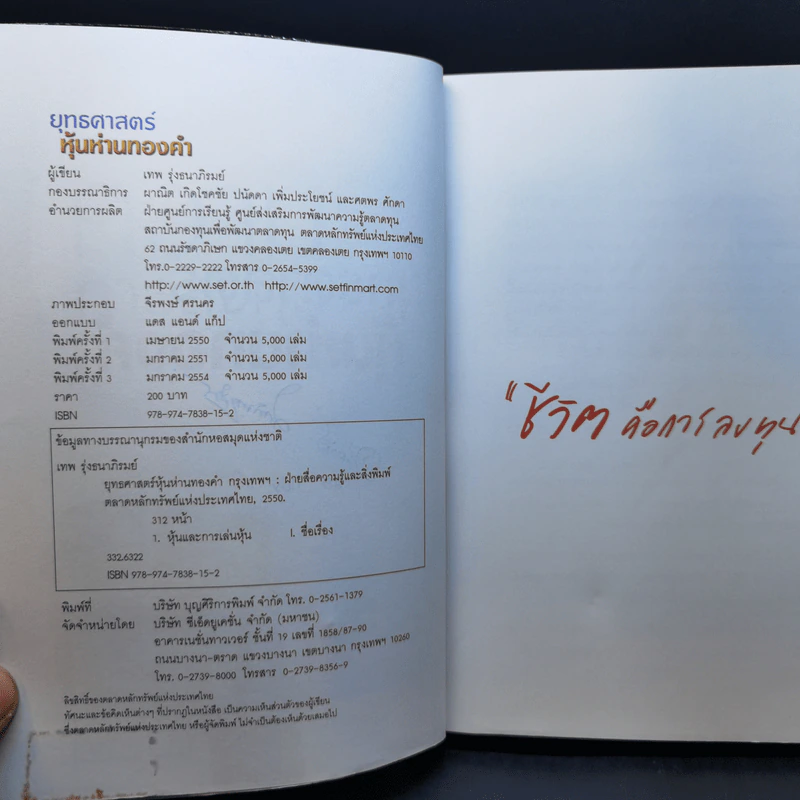 ยุทธศาสตร์
หุ้นห่านทองคำ
ผู้เขียน เทพ รุ่งธนาภิรมย์
กองบรรณาธิการ ผาณิต เกิดโชคชัย ปนัดดา เพิ่มประโยชน์ และศตพร ศักดา
อำนวยการผลิต ฝ่ายศูนย์การเรียนรู้ ศูนย์ส่งเสริมการพัฒนาความรู้ตลาดทุน
สถาบันกองทุนเพื่อพัฒนาตลาดทุน ตลาดหลักทรัพย์แห่งประเทศไทย
62 ถนนรัชดาภิเษก แขวงคลองเตย เขตคลองเตย กรุงเทพฯ 10110
โทร.0-2229-2222 โทรสาร 0-2654-5399
http://www.set.or.th http://www.setfinmart.com
ภาพประกอบ จีรพงษ์ ศรนคร
ออกแบบ แดส แอนด์ แก๊ป
พิมพ์ครั้งที่ 1 เมษายน 2550 จำนวน 5,000 เล่ม
พิมพ์ครั้งที่ 2 มกราคม 2551 จำนวน 5,000 เล่ม
พิมพ์ครั้งที่ 3 มกราคม 2554 จำนวน 5,000 เล่ม
ราคา 200 บาท
ISBN 978-974-7838-15-2
ข้อมูลทางบรรณานุกรมของสำนักหอสมุดแห่งชาติ
เทพ รุ่งธนาภิรมย์
ยุทธศาสตร์หุ้นห่านทองคำ กรุงเทพฯ : ฝ่ายสื่อความรู้และสิ่งพิมพ์
ตลาดหลักทรัพย์แห่งประเทศไทย, 2550.
312 หน้า
1. หุ้นและการเล่นหุ้น I. ชื่อเรื่อง
332.6322
ISBN 978-974-7838-15-2
พิมพ์ที่ บริษัท บุญศิริการพิมพ์ จำกัด โทร. 0-2561-1379
จัดจำหน่ายโดย บริษัท ซีเอ็ดยูเคชั่น จำกัด (มหาชน)
อาคารเนชั่นทาวเวอร์ ชั้นที่ 19 เลขที่ 1858/87-90
ถนนบางนา-ตราด แขวงบางนา เขตบางนา กรุงเทพฯ 10260
โทร. 0-2739-8000 โทรสาร 0-2739-8356-9
ลิขสิทธิ์ของตลาดหลักทรัพย์แห่งประเทศไทย
ทัศนะและข้อคิดเห็นต่างๆ ที่ปรากฏในหนังสือ เป็นความเห็นส่วนตัวของผู้เขียน
ซึ่งตลาดหลักทรัพย์แห่งประเทศไทย หรือผู้จัดพิมพ์ ไม่จำเป็นต้องเห็นด้วยเสมอไป
"ชีวิต คือการลงทุน